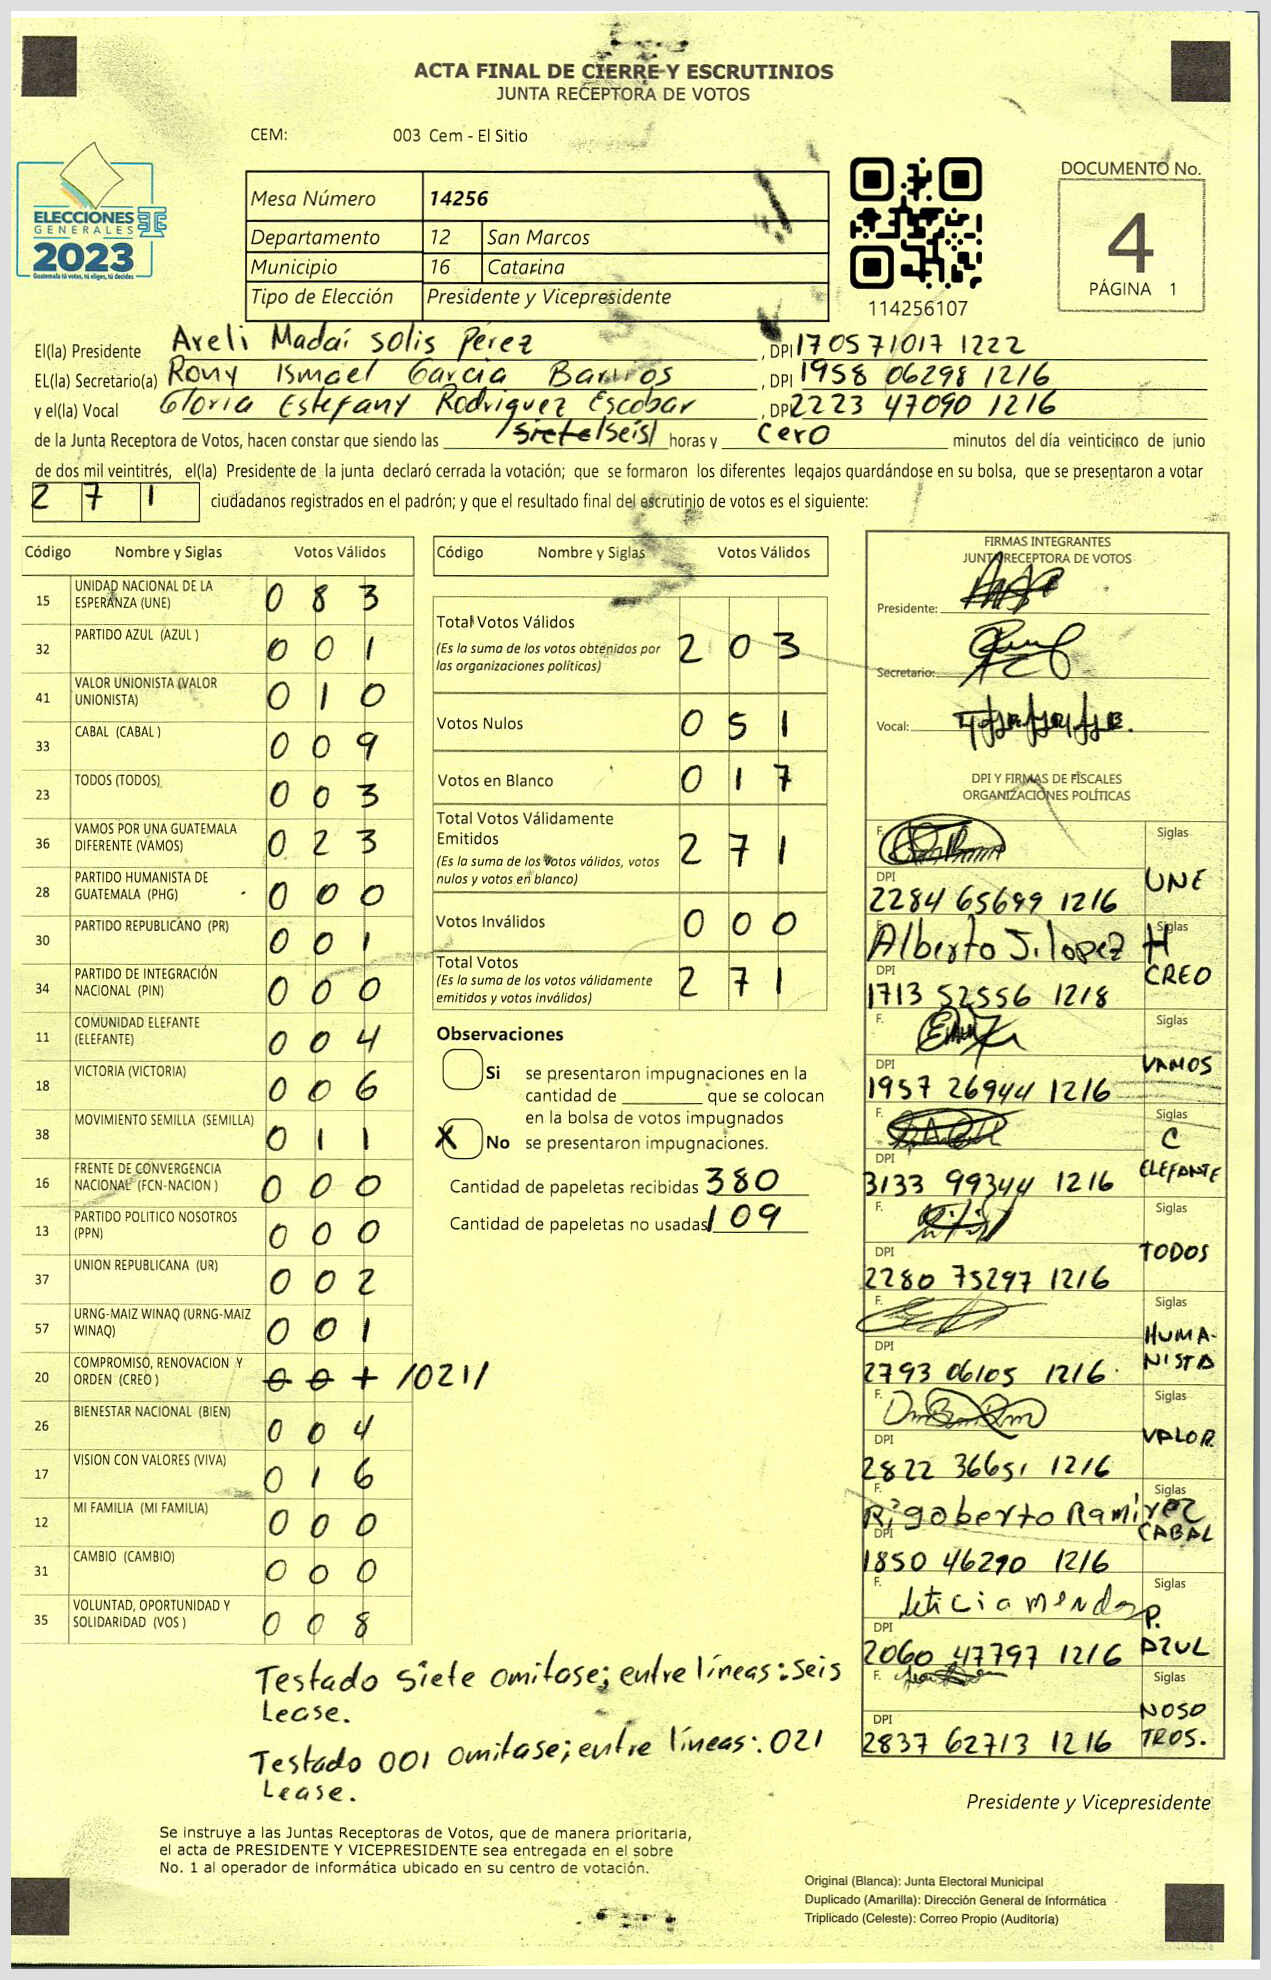 ACTA FINAL DE CIERRE Y ESCRUTINIOS
JUNTA RECEPTORA DE VOTOS
CEM: 003 Cem - El Sitio
ELECCIONES
GENERALES
2023
Guatemala tú votas, tú eliges, tú decides
Mesa Número 14256
Departamento 12 San Marcos
Municipio 16 Catarina
Tipo de Elección Presidente y Vicepresidente
114256107
DOCUMENTO No.
4
PÁGINA 1
El(la) Presidente Areli Madaí Solis Pérez, DPI 170571017 1222
EL(la) Secretario(a) Rony Ismael Garcia Barrios, DPI 1958 06298 1216
y el(la) Vocal Gloria Estefany Rodriguez Escobar, DPI 2223 47090 1216
de la Junta Receptora de Votos, hacen constar que siendo las /siete/seis/ horas y cero minutos del día veinticinco de junio
de dos mil veintitrés, el(la) Presidente de la junta declaró cerrada la votación; que se formaron los diferentes legajos guardándose en su bolsa, que se presentaron a votar
2 7 1 ciudadanos registrados en el padrón; y que el resultado final del escrutinio de votos es el siguiente:
Código Nombre y Siglas Votos Válidos
15 UNIDAD NACIONAL DE LA ESPERANZA (UNE) 0 8 3
32 PARTIDO AZUL (AZUL ) 0 0 1
41 VALOR UNIONISTA (VALOR UNIONISTA) 0 1 0
33 CABAL (CABAL ) 0 0 9
23 TODOS (TODOS) 0 0 3
36 VAMOS POR UNA GUATEMALA DIFERENTE (VAMOS) 0 2 3
28 PARTIDO HUMANISTA DE GUATEMALA (PHG) 0 0 0
30 PARTIDO REPUBLICANO (PR) 0 0 1
34 PARTIDO DE INTEGRACIÓN NACIONAL (PIN) 0 0 0
11 COMUNIDAD ELEFANTE (ELEFANTE) 0 0 4
18 VICTORIA (VICTORIA) 0 0 6
38 MOVIMIENTO SEMILLA (SEMILLA) 0 1 1
16 FRENTE DE CONVERGENCIA NACIONAL (FCN-NACION ) 0 0 0
13 PARTIDO POLITICO NOSOTROS (PPN) 0 0 0
37 UNION REPUBLICANA (UR) 0 0 2
57 URNG-MAIZ WINAQ (URNG-MAIZ WINAQ) 0 0 1
20 COMPROMISO, RENOVACION Y ORDEN (CREO ) 0 0 1 /021/
26 BIENESTAR NACIONAL (BIEN) 0 0 4
17 VISION CON VALORES (VIVA) 0 1 6
12 MI FAMILIA (MI FAMILIA) 0 0 0
31 CAMBIO (CAMBIO) 0 0 0
35 VOLUNTAD, OPORTUNIDAD Y SOLIDARIDAD (VOS ) 0 0 8
Código Nombre y Siglas Votos Válidos
Total Votos Válidos 2 0 3
(Es la suma de los votos obtenidos por
las organizaciones políticas)
Votos Nulos 0 5 1
Votos en Blanco 0 1 7
Total Votos Válidamente
Emitidos 2 7 1
(Es la suma de los votos válidos, votos
nulos y votos en blanco)
Votos Inválidos 0 0 0
Total Votos 2 7 1
(Es la suma de los votos válidamente
emitidos y votos inválidos)
Observaciones
Si se presentaron impugnaciones en la
cantidad de ________ que se colocan
en la bolsa de votos impugnados
X No se presentaron impugnaciones.
Cantidad de papeletas recibidas 380
Cantidad de papeletas no usadas 109
FIRMAS INTEGRANTES
JUNTA RECEPTORA DE VOTOS
Presidente:
Secretario:
Vocal:
DPI Y FIRMAS DE FISCALES
ORGANIZACIONES POLÍTICAS
F. Siglas
DPI UNE
2284 65699 1216
Alberto J. lopez H Siglas
DPI CREO
1713 52556 1218
F. Siglas
DPI VAMOS
1957 26944 1216
F. Siglas
C
DPI ELEFANTE
3133 99344 1216
F. Siglas
DPI TODOS
2280 75297 1216
F. Siglas
DPI HUMA-
NISTA
2793 06105 1216
F. Siglas
DPI VALOR
2822 36651 1216
F. Siglas
Rigoberto Ramirez
DPI CABAL
1850 46290 1216
F. Siglas
leticia mendoz
DPI P. AZUL
2060 47797 1216
F. Siglas
DPI NOSO
TROS.
2837 62713 1216
Testado siete omitase; entre líneas: seis
Lease.
Testado 001 omitase; entre líneas: 021
Lease.
Presidente y Vicepresidente
Se instruye a las Juntas Receptoras de Votos, que de manera prioritaria,
el acta de PRESIDENTE Y VICEPRESIDENTE sea entregada en el sobre
No. 1 al operador de informática ubicado en su centro de votación.
Original (Blanca): Junta Electoral Municipal
Duplicado (Amarilla): Dirección General de Informática
Triplicado (Celeste): Correo Propio (Auditoría)